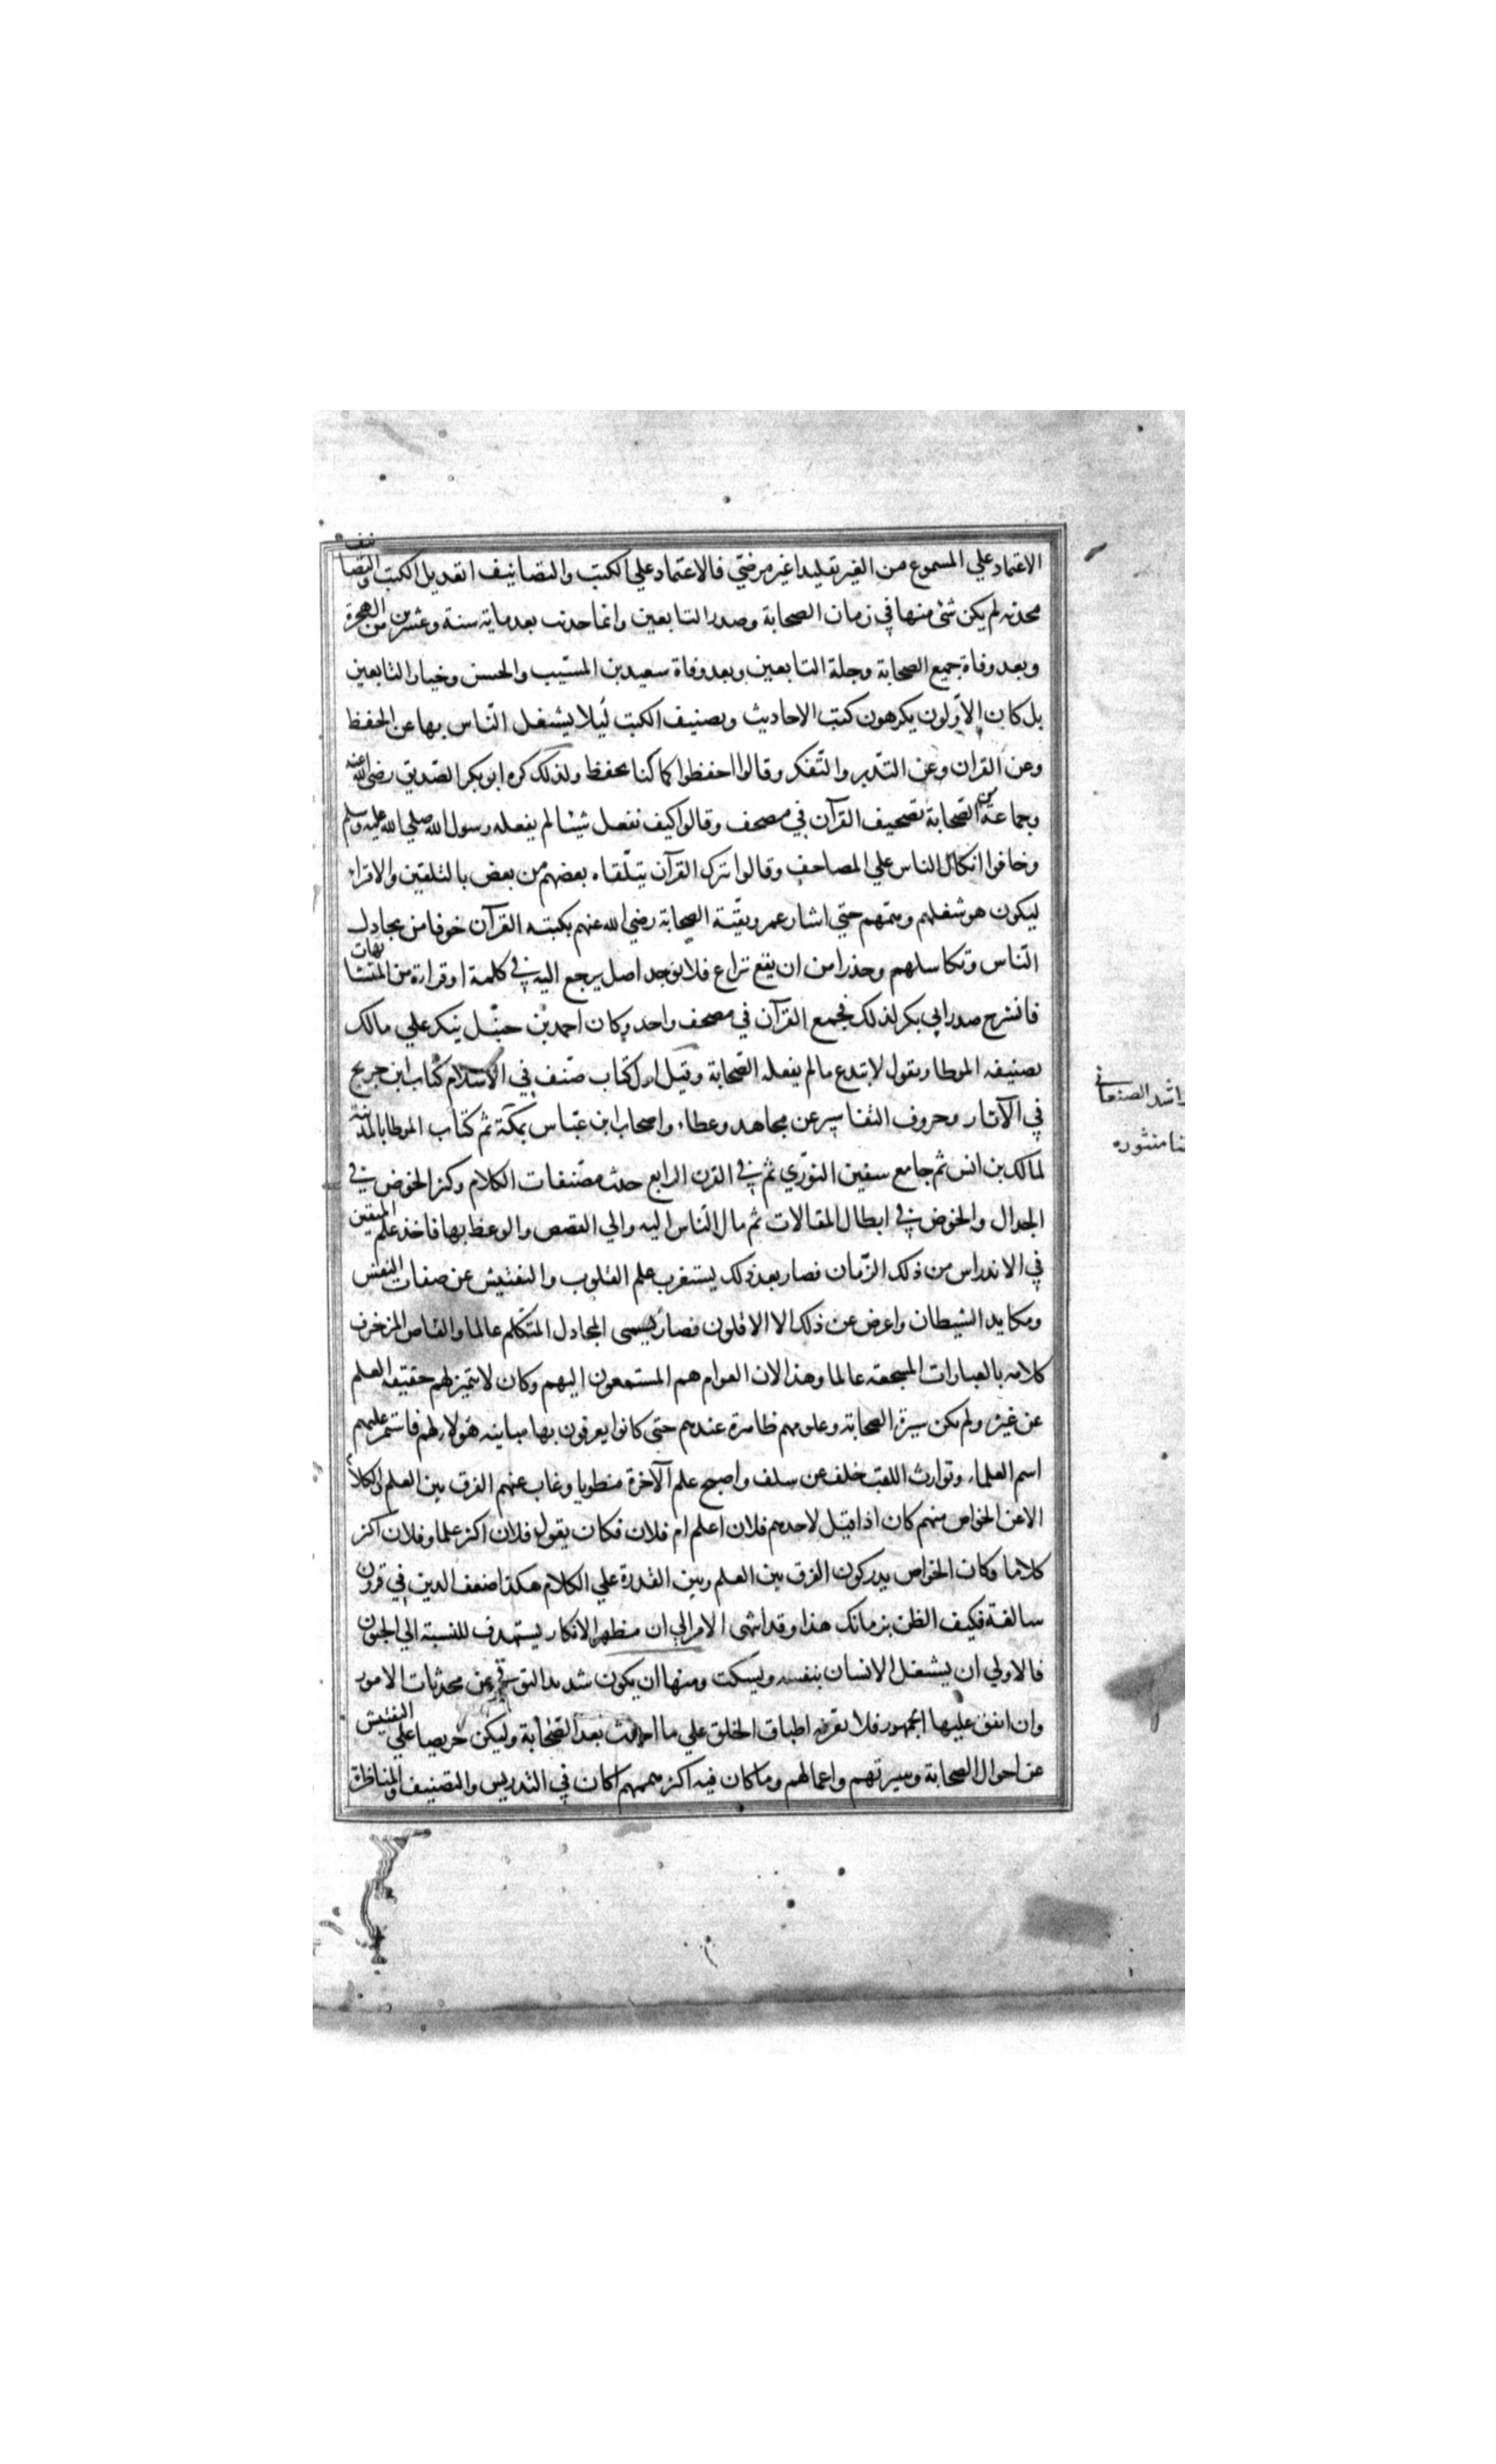 الاعتماد علي المسموع من الغير تقليدا غير مرضي فالاعتماد علي الكتب والتصانيف ابعد بل الكتب والتصانيف
محدثه لم يكن شئ منها في زمان الصحابة وصدر التابعين وانما حدثت بعد ماية سنة وعشرين من الهجرة
وبعد وفاة جميع الصحابة وجلة التابعين وبعد وفاة سعيد بن المسيب والحسن وخيار التابعين
بل كان الاولون يكرهون كتب الاحاديث وتصنيف الكتب ليلا يشتغل الناس بها عن الحفظ
وعن القران وعن التدبر والتفكر وقالوا احفظوا كما كنا نحفظ ولذلك كره ابو بكر الصديق رضي الله عنه
وجماعة من الصحابة تصحيف القرآن في مصحف وقالوا كيف نفعل شيئا لم يفعله رسول الله صلي الله عليه وسلم
وخافوا اتكال الناس علي المصاحف وقالوا نترك القرآن يتلقاه بعضهم من بعض بالتلقين والاقراء
ليكون هو شغلهم وهمهم حتي اشار عمر وبقية الصحابة رضي الله عنهم بكتبه القرآن خوفا من تخاذل
الناس وتكاسلهم وحذرا من ان يقع نزاع فلا يوجد اصل يرجع اليه في كلمة او قراءة من المتشابهات
فانشرح صدر ابي بكر لذلك فجمع القرآن في مصحف واحد وكان احمد بن حنبل ينكر علي مالك
تصنيفه الموطا ويقول لا تبتدع ما لم يفعله الصحابة وقيل اول كتاب صنف في الاسلام كتاب ابن جريج
في الآثار وحروف التفاسير عن مجاهد وعطاء واصحاب ابن عباس بمكة ثم كتاب الموطا بالمدينة
لمالك بن انس ثم جامع سفين الثوري ثم في القرن الرابع حدثت مصنفات الكلام وكثر الخوض في
الجدال والخوض في ابطال المقالات ثم مال الناس اليه والي القصص والوعظ بها فاخذ علم اليقين
في الاندراس من ذلك الزمان فصار بعد ذلك يستغرب علم القلوب والتفتيش عن صفات النفس
ومكايد الشيطان واعرض عن ذلك الا الاقلون فصار يسمى المجادل المتكلم عالما والقاص المزخرف
كلامه بالعبارات المسجعة عالما وهذا لان العوام هم المستمعون اليهم وكان لا يتميز لهم حقيقه العلم
عن غيره ولم يكن سيرة الصحابة وعلومهم ظاهرة عندهم حتى كانوا يعرفون بها مباينه هؤلاء لهم فاستمر عليهم
اسم العلماء وتوارث اللقب خلف عن سلف واصبح علم الآخرة منطويا وغاب عنهم الفرق بين العلم والكلام
الا عن الخواص منهم كان اذا قيل لاحدهم فلان اعلم ام فلان فكان يقول فلان اكثر علما وفلان اكثر
كلاما وكان الخواص يدركون الفرق بين العلم وبين القدرة علي الكلام هكذا ضعف الدين في قرون
سالفة فكيف الظن بزمانك هذا وقد انتهى الامر الي ان مظهر الانكار يستهدف للنسبة الي الجنون
فالاولي ان يشتغل الانسان بنفسه ويسكت ومنها ان يكون شديد التوقي عن محدثات الامور
وان اتفق عليها الجمهور فلا يغرنه اطباق الخلق علي ما احدث بعد الصحابة وليكن حريصا علي التفتيش
عن احوال الصحابة وسيرتهم واعمالهم وما كان فيه اكثر همهم اكان في التدريس والتصنيف والمناظرة
راشد الصنعاني
منثوره